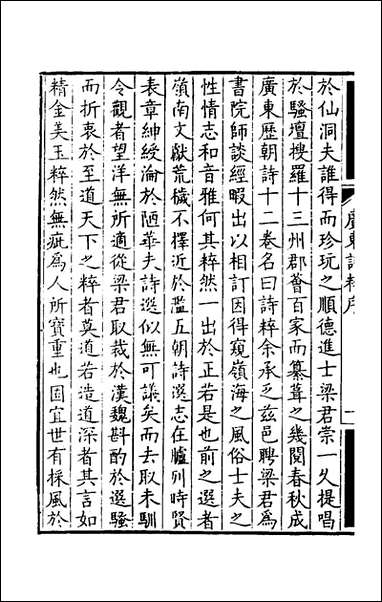 廣東詩粹序
一
於仙洞夫誰得而珍玩之順德進士梁君崇一久提唱
於騷壇搜羅十三州郡薈百家而纂葺之幾閱春秋成
廣東歷朝詩十二卷名曰詩粹余承乏茲邑聘梁君爲
書院師談經暇出以相訂因得窺領海之風俗士夫之
性情志和音雅何其粹然一出於正若是也前之選者
嶺南文獻荒穢不擇近於濫五朝詩選志在臚列時賢
表章紳綬淪於陋華夫詩選似無可議矣而去取未馴
令觀者望洋無所適從梁君取裁於漢魏斟酌於選騷
而折衷於至道天下之粹者莫道若造道深者其言如
精金美玉粹然無疵爲人所寶重也固宜世有採風於